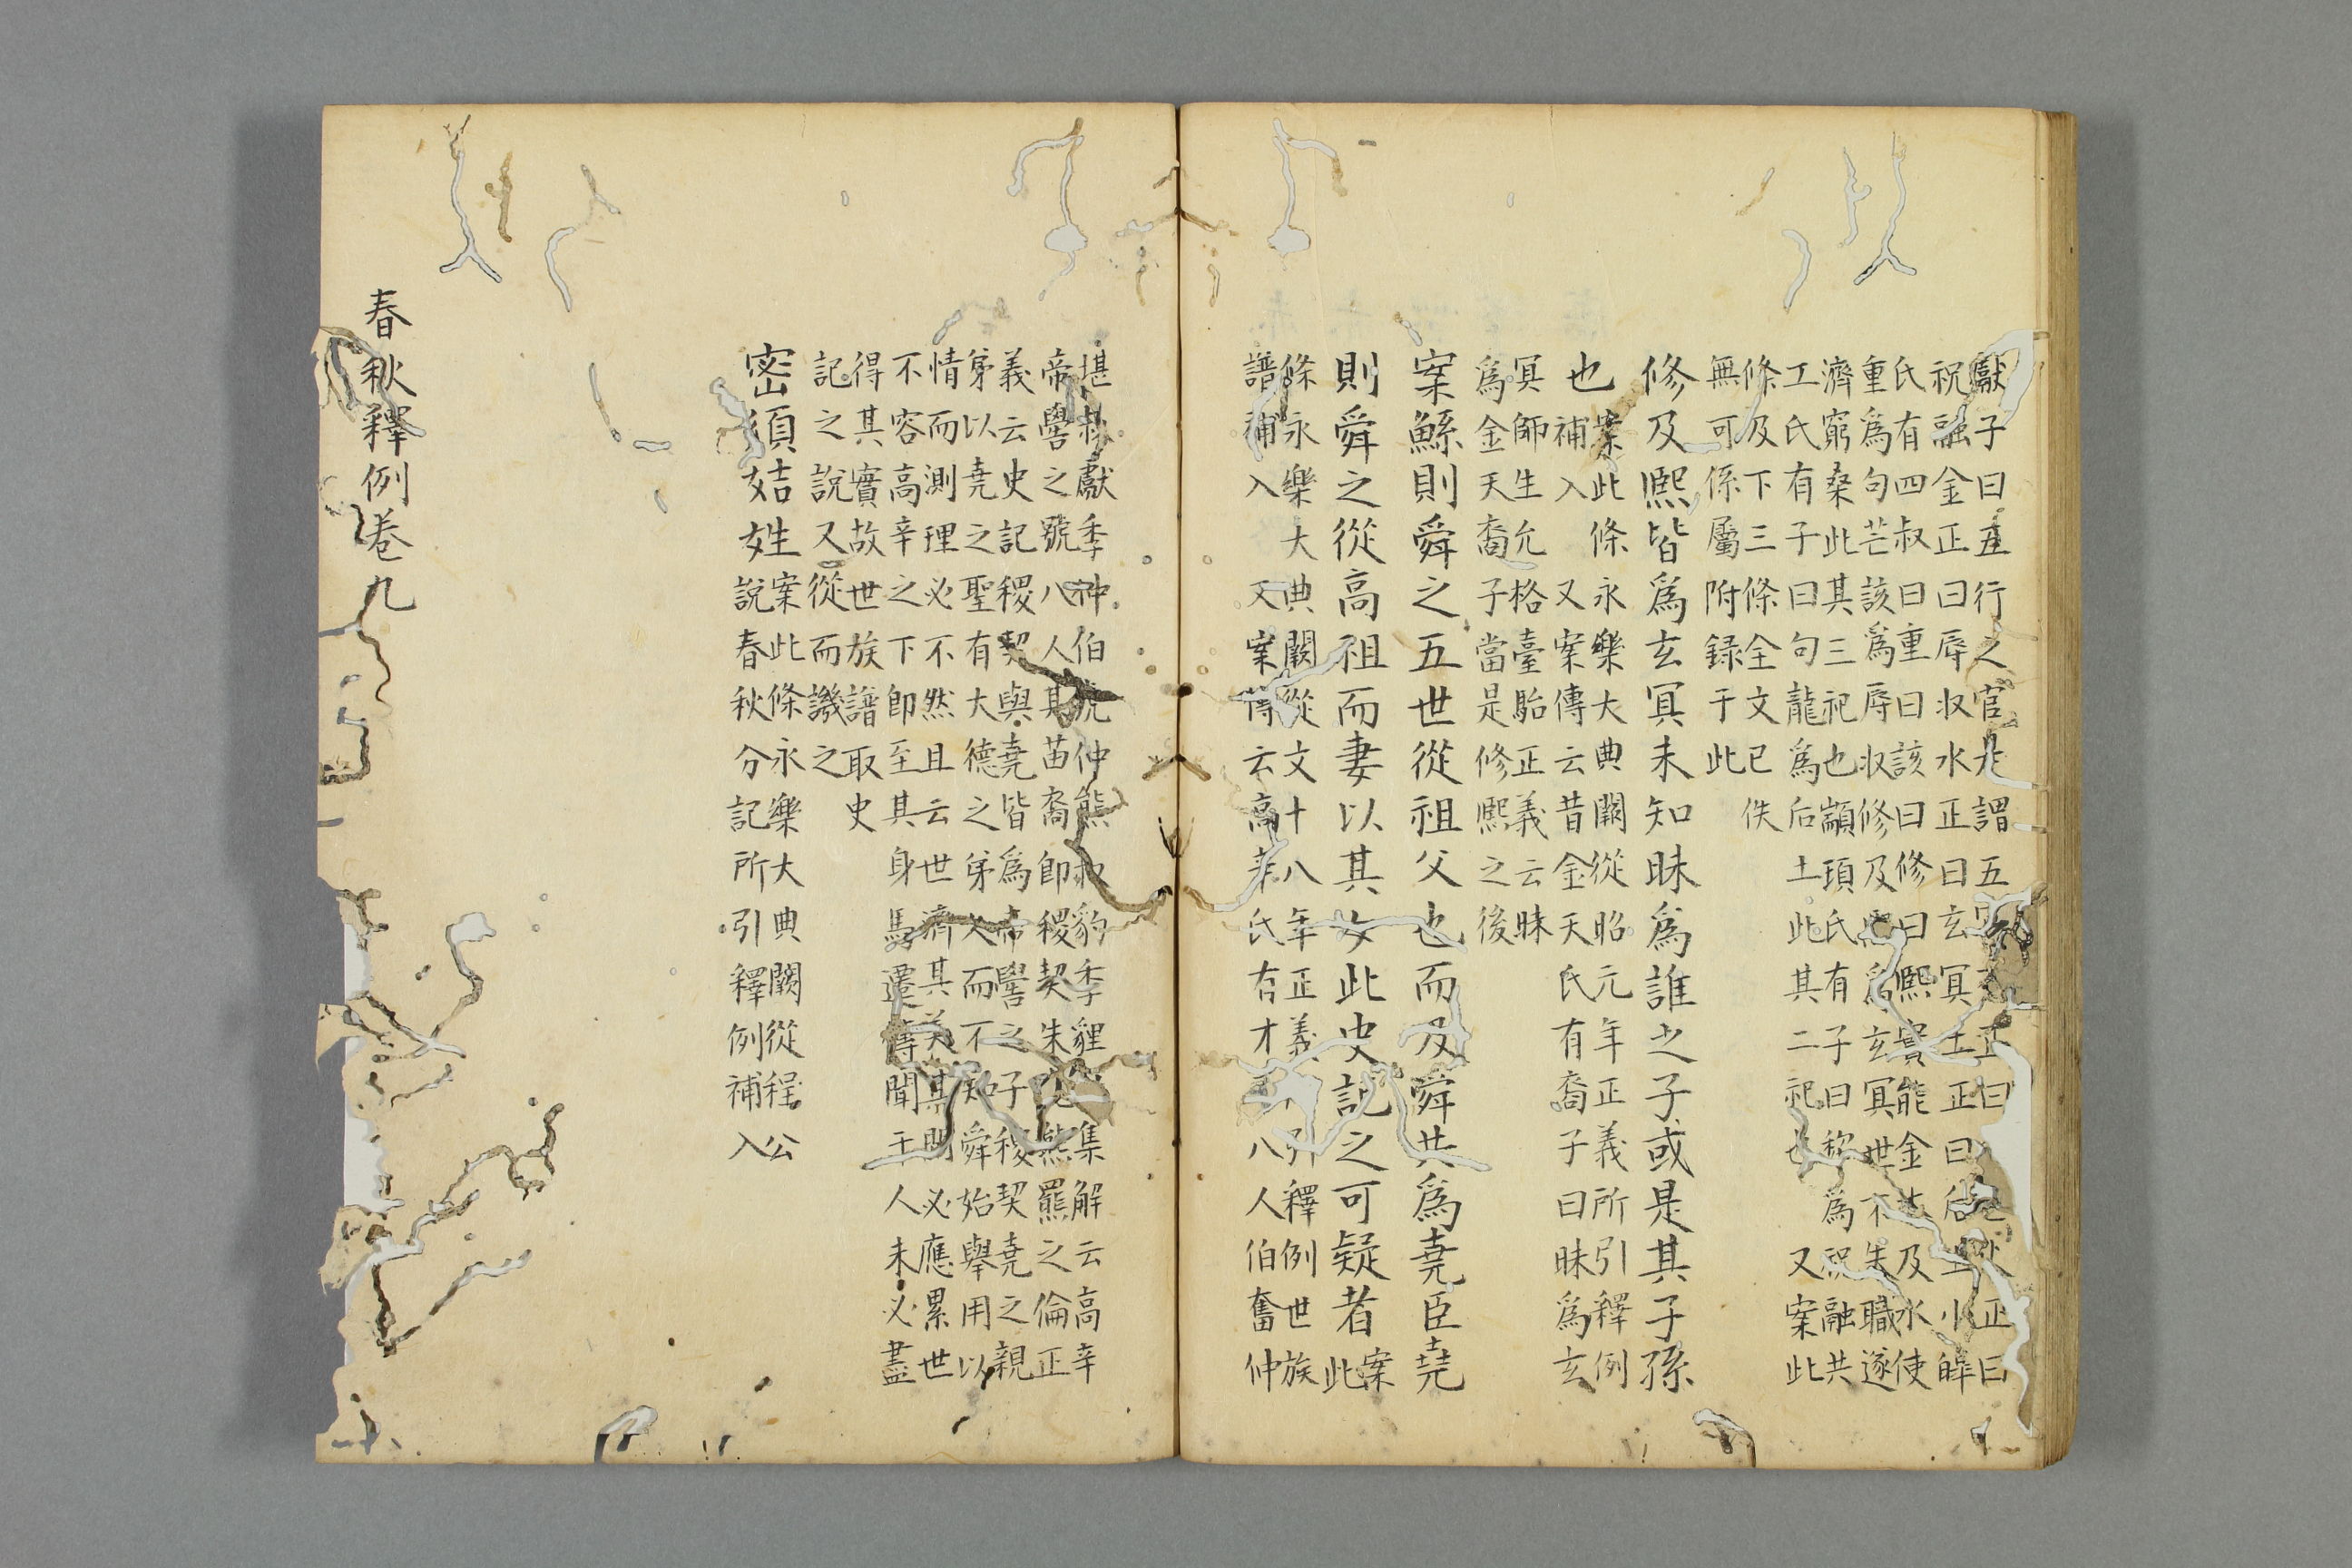 獻子曰五行之官是謂五正曰正曰
祝融金正曰辱収水正曰玄冥土正曰后土少皡
氏有四叔曰重曰該曰修曰熙實能金木及水使
重爲句芒該爲辱収修及熙爲玄冥世不失職遂
濟窮桑此其三祀也顓頊氏有子曰爲祝融共
工氏有子曰句龍爲后土此其二祀也又案此
條及下三條全文已佚
無可係屬附録于此
修及熙皆爲玄冥未知昧爲誰之子或是其子孫
也案此條永樂大典闕從昭元年正義所引釋例
補入又案傳云昔金天氏有裔子曰昧爲玄
冥師生允格臺駘正義云昧
爲金天裔子當是修熙之後
案鯀則舜之五世從祖父也而及舜共爲堯臣堯
則舜之從高祖而妻以其女此史記之可疑者案此
條永樂大典闕從文十八年正義所引釋例世族
譜補入又案傳云高辛氏有才子八人伯奮仲
堪叔獻季仲伯虎仲熊叔豹季貍集解云高辛
帝嚳之號八人其苗裔即稷契朱虎熊羆之倫正
義云史記稷契與堯皆爲帝嚳之子稷契堯之親
弟以堯之聖有大德之弟久而不知舜始舉用以
情而測理必不然且云世濟其美其明必應累世
不容高辛之下即至其身馬遷傳聞于人未必盡
得其實故世族譜取史
記之說又從而譏之
密須姞姓案此條永樂大典闕從程公
說春秋分記所引釋例補入
春秋釋例卷九